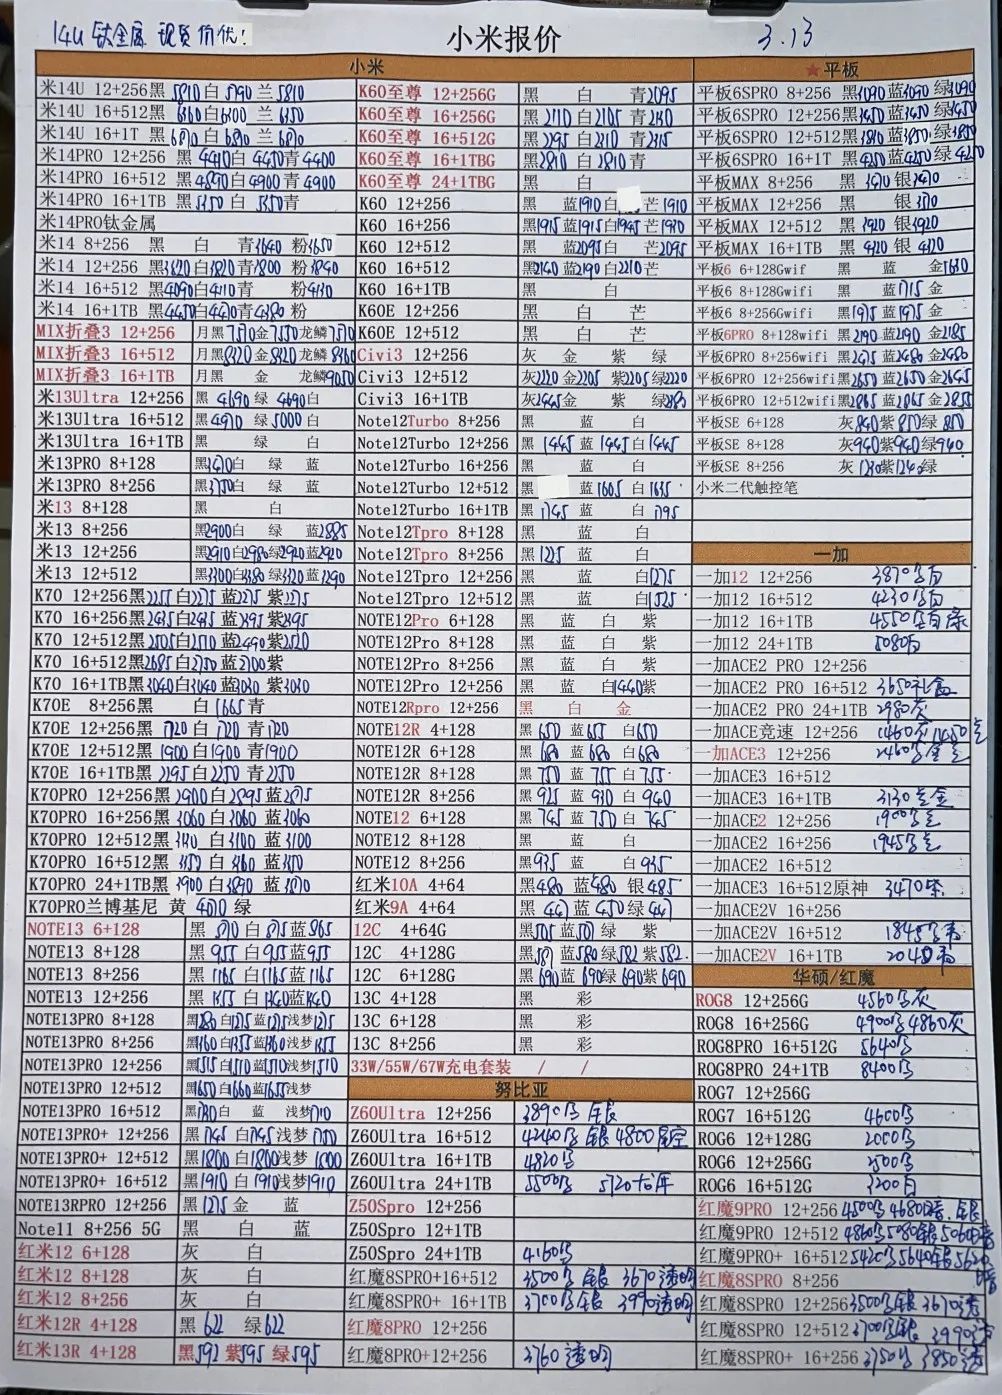 14U 钛金属 现货价优!
小米报价
3.13
小米
米14U 12+256黑5810白5790兰5810
米14U 16+512黑6360白6300兰6350
米14U 16+1T 黑6870白6890兰6870
米14PRO 12+256 黑4410白4450青4400
米14PRO 16+512 黑4890白4900青4900
米14PRO 16+1TB 黑5350白5350青
米14PRO钛金属
米14 8+256 黑 白 青3640 粉3650
米14 12+256 黑3820白3820青3800 粉3840
米14 16+512 黑4090白4110青 粉4130
米14 16+1TB 黑4450白4470青4380 粉
MIX折叠3 12+256 月黑7570金7550龙鳞7570
MIX折叠3 16+512 月黑8320金8320龙鳞8360
MIX折叠3 16+1TB 月黑 金 龙鳞9050
米13Ultra 12+256 黑4690绿4690白
米13Ultra 16+512 黑4970绿5000白
米13Ultra 16+1TB 黑 绿 白
米13PRO 8+128 黑3470白 绿 蓝
米13PRO 8+256 黑3750白 绿 蓝
米13 8+128 黑 白
米13 8+256 黑2900白 绿 蓝2885
米13 12+256 黑2910白2980绿2920蓝2920
米13 12+512 黑3300白3380绿3320蓝3290
K70 12+256黑2255白2275蓝2275紫2275
K70 16+256黑2435白2435蓝2395紫2395
K70 12+512黑2505白2510蓝2490紫2520
K70 16+512黑2685白2750蓝2700紫
K70 16+1TB黑3040白3040蓝3030紫3030
K70E 8+256黑 白1665青
K70E 12+256黑1720白1720青1720
K70E 12+512黑1900白1900青1900
K70E 16+1TB黑2295白2250青2250
K70PRO 12+256黑2900白2895蓝2875
K70PRO 16+256黑3060白3060蓝3060
K70PRO 12+512黑3140白3100蓝3100
K70PRO 16+512黑3350白3360蓝3350
K70PRO 24+1TB黑3900白3890蓝3870
K70PRO兰博基尼 黄 4070 绿
NOTE13 6+128 黑870白875蓝865
NOTE13 8+128 黑955白955蓝955
NOTE13 8+256 黑1165白1165蓝1165
NOTE13 12+256 黑1355白1340蓝1340
NOTE13PRO 8+128 黑1280白1275蓝1275浅梦1275
NOTE13PRO 8+256 黑1360白1355蓝1360浅梦1355
NOTE13PRO 12+256 黑1515白1510蓝1570浅梦1510
NOTE13PRO 12+512 黑1650白1660蓝1655浅梦
NOTE13PRO 16+512 黑1780白 蓝 浅梦1710
NOTE13PRO+ 12+256 黑1745白1745浅梦1750
NOTE13PRO+ 12+512 黑1800白1800浅梦1800
NOTE13PRO+ 16+512 黑1910白1910浅梦1910
NOTE13RPRO 12+256 黑1275金 蓝
Note11 8+256 5G 黑 白 蓝
红米12 6+128 灰 白
红米12 8+128 灰 白
红米12 8+256 灰 白
红米12R 4+128 黑622 绿622
红米13R 4+128 黑592紫595绿595
K60至尊 12+256G 黑 白 青2095
K60至尊 16+256G 黑2110白2105青2130
K60至尊 16+512G 黑2295白2310青2315
K60至尊 16+1TBG 黑2810白2810青
K60至尊 24+1TBG 黑 白
K60 12+256 黑 蓝1910白 芒1910
K60 16+256 黑1915蓝1915白1945芒1930
K60 12+512 黑 蓝2095白 芒2095
K60 16+512 黑2140蓝2190白2210芒
K60 16+1TB 黑 白
K60E 12+256 黑 白 芒
K60E 12+512 黑 白 芒
Civi3 12+256 灰 金 紫 绿
Civi3 12+512 灰2220金2205紫2205绿2220
Civi3 16+1TB 灰2445金 紫 绿
Note12Turbo 8+256 黑 蓝 白
Note12Turbo 12+256 黑1445蓝1445白1445
Note12Turbo 16+256 黑 蓝 白
Note12Turbo 12+512 黑 蓝1605白1635
Note12Turbo 16+1TB 黑1745蓝 白1795
Note12Tpro 8+128 黑 蓝 白
Note12Tpro 8+256 黑1225蓝 白
Note12Tpro 12+256 黑 蓝 白1275
Note12Tpro 12+512 黑 蓝 白1525
NOTE12Pro 6+128 黑 蓝 白 紫
NOTE12Pro 8+128 黑 蓝 白 紫
NOTE12Pro 8+256 黑 蓝 白 紫
NOTE12Pro 12+256 黑 蓝 白1440紫
NOTE12Rpro 12+256 黑 白 金
NOTE12R 4+128 黑650蓝655白650
NOTE12R 6+128 黑680蓝680白680
NOTE12R 8+128 黑750蓝755白755
NOTE12R 8+256 黑925蓝930白940
NOTE12 6+128 黑745蓝750白745
NOTE12 8+128 黑 蓝 白
NOTE12 8+256 黑935蓝 白935
红米10A 4+64 黑480蓝480银485
红米9A 4+64 黑447蓝450绿447
12C 4+64G 黑505蓝507绿 紫
12C 4+128G 黑581蓝580绿582紫582
12C 6+128G 黑690蓝690绿690紫690
13C 4+128 黑 彩
13C 6+128 黑 彩
13C 8+256 黑 彩
33W/55W/67W充电套装 / /
努比亚
Z60Ultra 12+256 3890黑 银
Z60Ultra 16+512 4240黑银 4800星空
Z60Ultra 16+1TB 4820黑
Z60Ultra 24+1TB 5500黑
Z50Spro 12+256
Z50Spro 12+1TB
Z50Spro 24+1TB 4160黑
红魔8SPRO+16+512 3500黑银 3670透明
红魔8SPRO+ 16+1TB 3700黑银 3990透明
红魔8PRO 12+256
红魔8PRO+12+256 3760透明
★平板
平板6SPRO 8+256 黑3090蓝3090绿3090
平板6SPRO 12+256黑3450蓝3450绿3450
平板6SPRO 12+512黑3810蓝3850绿3850
平板6SPRO 16+1T 黑4250蓝4250绿4250
平板MAX 8+256 黑3470银3470
平板MAX 12+256 黑 银3710
平板MAX 12+512 黑3920银3920
平板MAX 16+1TB 黑4120银4120
平板6 6+128Gwif 黑 蓝 金1630
平板6 8+128Gwifi 黑 蓝1715金
平板6 8+256Gwifi 黑1975蓝1975金
平板6PRO 8+128wifi 黑2190蓝2190金2185
平板6PRO 8+256wifi 黑2475蓝2480金2480
平板6PRO 12+256wifi黑2650蓝2650金2645
平板6PRO 12+512wifi黑2865蓝2865金2855
平板SE 6+128 灰840紫850绿850
平板SE 8+128 灰940紫940绿940
平板SE 8+256 灰1230紫1240绿
小米二代触控笔
一加
一加12 12+256 3870黑白
一加12 16+512 4230黑白
一加12 16+1TB 4550黑白绿
一加12 24+1TB 5080白
一加ACE2 PRO 12+256
一加ACE2 PRO 16+512 3650礼盒
一加ACE2 PRO 24+1TB 2980灰
一加ACE竞速 12+256
一加ACE3 12+256
一加ACE3 16+512
一加ACE3 16+1TB 3130
一加ACE2 12+256 1900黑
一加ACE2 16+256 1945黑
一加ACE2 16+512
一加ACE3 16+512原神 3470紫
一加ACE2V 16+256
一加ACE2V 16+512 1845
一加ACE2V 16+1TB 2048
华硕/红魔
ROG8 12+256G 4560黑灰
ROG8 16+256G 4900黑4860灰
ROG8PRO 16+512G 5640黑
ROG8PRO 24+1TB 8400黑
ROG7 12+256G
ROG7 16+512G 4600黑
ROG6 12+128G 2000黑
ROG6 12+256G 2500黑
ROG6 16+512G 3200白
红魔9PRO 12+256 4500黑4680暗.银
红魔9PRO 12+512 4860黑5080银5060暗
红魔9PRO+ 16+512 5420黑5640银5620暗
红魔8SPRO 8+256
红魔8SPRO 12+256 3500黑银3670透
红魔8SPRO 12+512 3700黑银 3990透
红魔8SPRO+ 16+256 3750黑 3850透